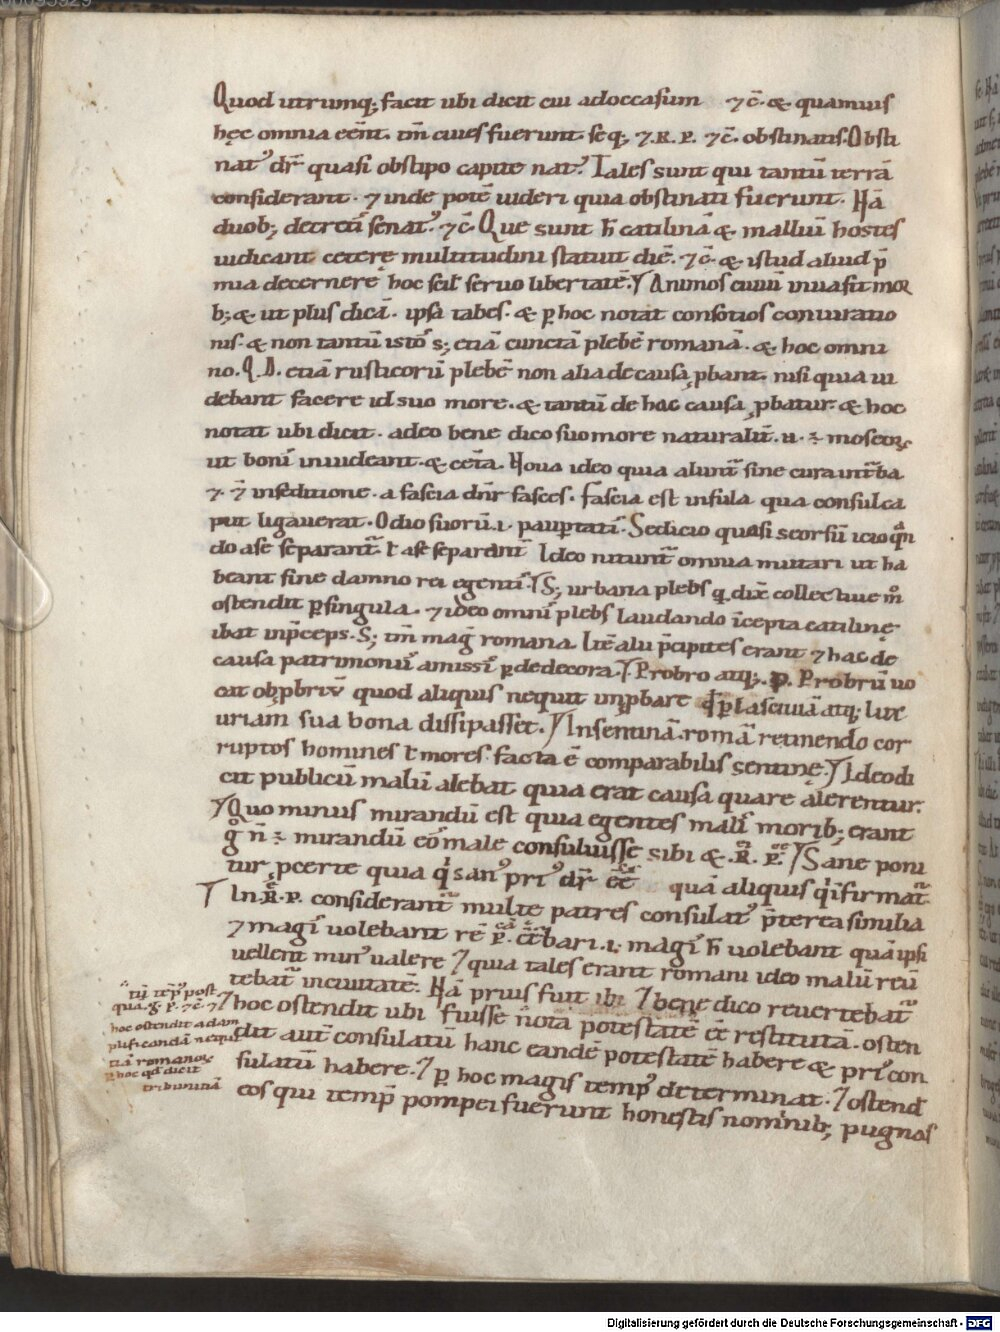 Quod utrumq; facit ubi dicit cui adoccasum ⁊c̄. & quamuis
hęc omnia eēnt. tm̄ ciues fuerunt. seq; ⁊.R.P. ⁊c̄. obstinatis. Obsti
natꝰ dr̄ quasi obstipo capite natꝰ. Tales sunt qui tantū terrā
considerant. ⁊ inde potē uideri quia obstinati fuerunt. Nā
duob; decretū senatꝰ. ⁊c̄. Que sunt h̄ catilinā & malliū hostes
iudicant ceterę multitudini statuit diē. ⁊c̄. & istud aliud p̄
mia decernere hoc scil̄ seruo libertatē. Animos ciuiū inuasit mor
b; & ut plus dicā. ipsa tabes. & ꝑ hoc notat consotios coniuratio
nis. & non tantū istoꝰ s; etiā cunctā plebē romanā. & hoc omni
no. Q.D. etiā rusticorū plebē non alia de causa ꝓbant. nisi quia ui
debant facere id suo more. & tantū de hac causa ꝓbatur. & hoc
notat ubi dicit. adeo bene dico suo more naturalit̄.
ut boni inuideant. & cet̄a. Noua ideo quia alunt̄ sine cura int̄ba
⁊. ī inseditione. a fascia dn̄r fasces. fascia est insula qua consul ca
put ligauerat. Odio suorū .i. paupertatī. Sedicio quasi seorsū icio qn̄
do a se separant̄ ł a se separānt Ideo nitunt̄ omnia mutari ut ha
beant sine damno rei egentī. S; urbana plebs q. dix̄ collectiue m̊
ostendit ꝑ singula. ⁊ ideo omnī plebs laudando īcepta catilinę
ibat inp̄ceps. S; tm̄ mag̊ romana. Itē alii p̄cipites erant ⁊ hac de
causa patrimoniū amissī ꝑ dedecora. Probro atq;. P. Probrū uo
cat obꝓbriū quod aliquis nequit inꝓbare ꝑ lasciuiā atq; lux
uriam sua bona dissipasset. In sentinā. romā retinendo cor
ruptos homines ł mores facta ē comparabilis sentinę. Ideo di
cit publicū malū alebat quia erat causa quare alerentur.
Quo minus mirandū est quia egentes malī morib; erant
g̊ n̄ ÷ mirandū eōs male consuluisse sibi & .R.P. Sane poni
tur ꝓ certe quia q̄ sanꝰ priꝰ dr̄ ēe quā aliquis q̄ infirmat̄.
In R.P. considerant̄ multe patres consulatꝰ p̄terea similia
⁊ magī uolebant rē P. bari .i. magī h̄ uolebant quā ipsi
uellent minꝰ ualere quia tales erant romani ideo malū reū
tebat̄ inciuitatē. Nā prius fuit ibi bene dico reuertebat̄
hoc ostendit ubi fuisse nota potestatē ēe restitutā. osten
dit aut̄ consulatū hanc eandē potestatē habere & priꝰ con
sulatū habere. ꝑ hoc magis tempꝰ determinat. ostend̄
eos qui temp̄ pompei fuerunt honestis nominib; pugnas
tū tēpꝰ post
qua.g.p. ⁊c̄. ⁊
hoc ostendit adam
plificandā nequi
tiā romanorꝫ
ꝑ hoc qd̄ dicit
tribuniciā
Digitalisierung gefördert durch die Deutsche Forschungsgemeinschaft - DFG